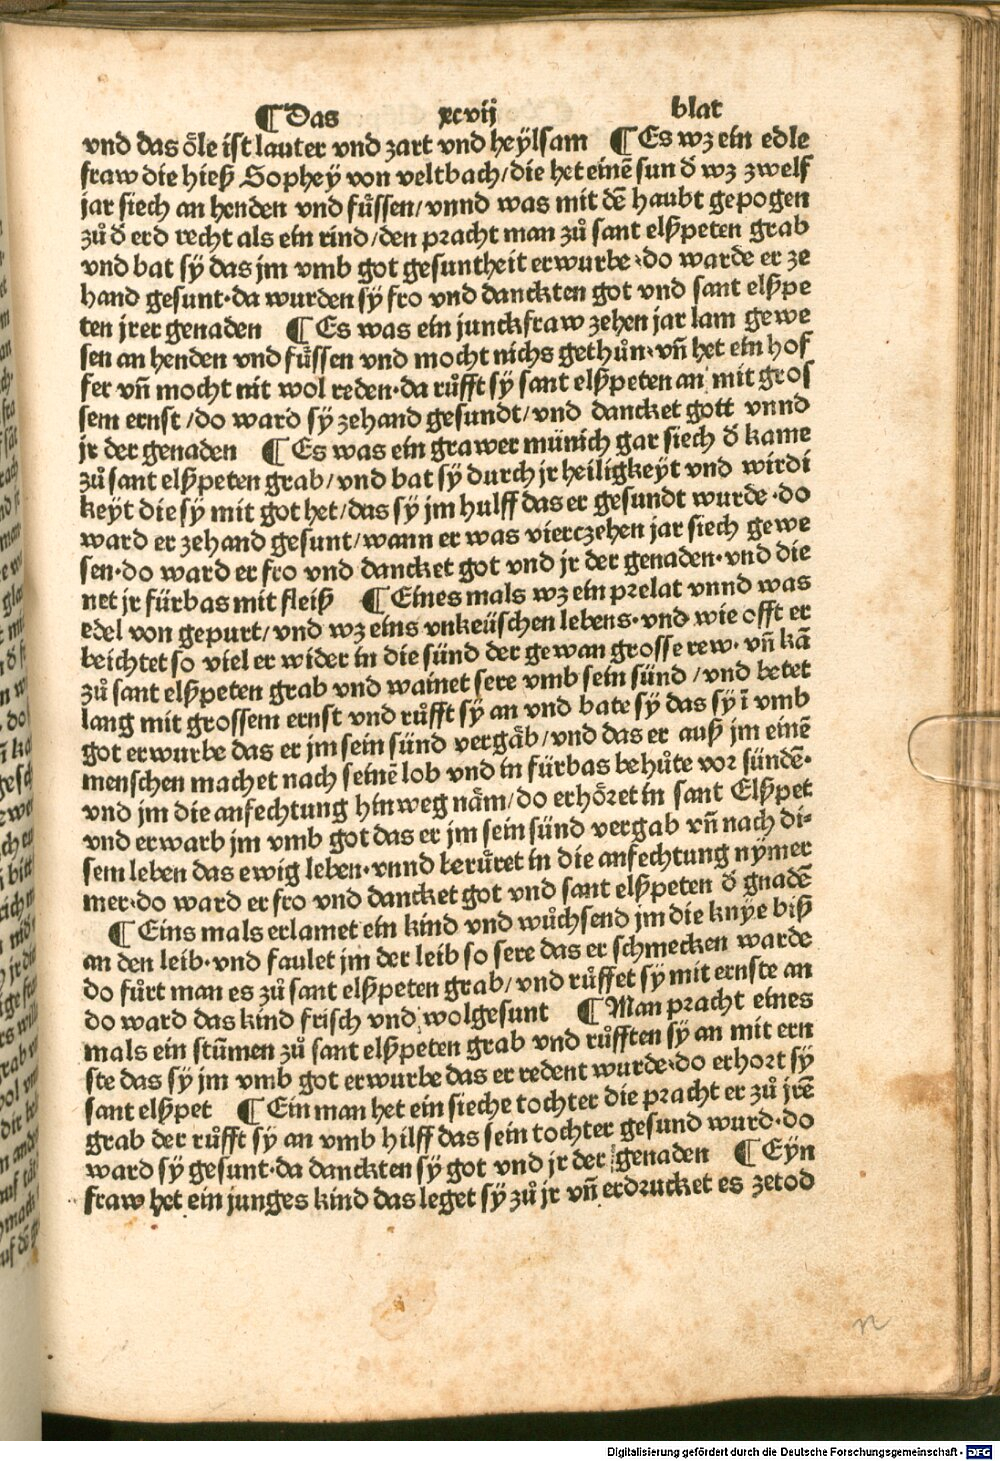 ¶ Das xcvij blat
vnd das öle ist lauter vnd zart vnd heÿlsam ¶ Es wz ein edle
fraw die hieß Sopheÿ von veltbach/die het einẽ sun d̄ wz zwelf
jar siech an henden vnd fuͤssen/vnnd was mit dẽ haubt gepogen
zuͦ d̄ erd recht als ein rind/den pracht man zuͦ sant elßpeten grab
vnd bat sÿ das jm vmb got gesuntheit erwurbe·do warde er ze
hand gesunt·da wurden sÿ fro vnd danckten got vnd sant elßpe
ten jrer genaden ¶ Es was ein junckfraw zehen jar lam gewe
sen an henden vnd fuͤssen vnd mocht nichs gethuͦn·vñ het ein hof
fer vñ mocht nit wol reden·da ruͦfft sÿ sant elßpeten an mit gros
sem ernst/do ward sÿ zehand gesundt/vnd dancket gott vnnd
jr der genaden ¶ Es was ein grawer münich gar siech d̄ kame
zuͦ sant elßpeten grab/vnd bat sÿ durch jr heiligkeÿt vnd wirdi
keÿt die sÿ mit got het/das sÿ jm hulff das er gesundt wurde·do
ward er zehand gesunt/wann er was vierczehen jar siech gewe
sen·do ward er fro vnd dancket got vnd jr der genaden·vnd die
net jr fürbas mit fleiß ¶ Eines mals wz ein prelat vnnd was
edel von gepurt/vnd wz eins vnkeüschen lebens·vnd wie offt er
beichtet so viel er wider in die sünd der gewan grosse rew·vñ kã
zuͦ sant elßpeten grab vnd wainet sere vmb sein sünd/vnd betet
lang mit grossem ernst vnd ruͦfft sÿ an vnd bate sÿ das sÿ ĩ vmb
got erwurbe das er jm sein sünd vergäb/vnd das er auß jm einẽ
menschen machet nach seinẽ lob vnd in fürbas behuͤte vor sündẽ·
vnd jm die anfechtung hinweg näm/do erhöret in sant Elßpet
vnd erwarb jm vmb got das er jm sein sünd vergab vñ nach di-
sem leben das ewig leben·vnnd beruͤret in die anfechtung nÿmer
mer·do ward er fro vnd dancket got vnd sant elßpeten d̄ gnadẽ
¶ Eins mals erlamet ein kind vnd wuͦchsend jm die knÿe biß
an den leib·vnd faulet jm der leib so sere das er schmecken warde
do fuͤrt man es zuͦ sant elßpeten grab/vnd ruͦffet sÿ mit ernste an
do ward das kind frisch vnd wolgesunt ¶ Man pracht eines
mals ein stũmen zuͦ sant elßpeten grab vnd ruͦfften sÿ an mit ern
ste das sÿ jm vmb got erwurbe das er redent wurde·do erhort sÿ
sant elßpet ¶ Ein man het ein sieche tochter die pracht er zuͦ jrẽ
grab der ruͦfft sÿ an vmb hilff das sein tochter gesund wurd·do
ward sÿ gesunt·da danckten sÿ got vnd jr der genaden ¶ Eÿn
fraw het ein junges kind das leget sÿ zuͦ jr vñ erdrucket es zetod
Digitalisierung gefördert durch die Deutsche Forschungsgemeinschaft - DFG